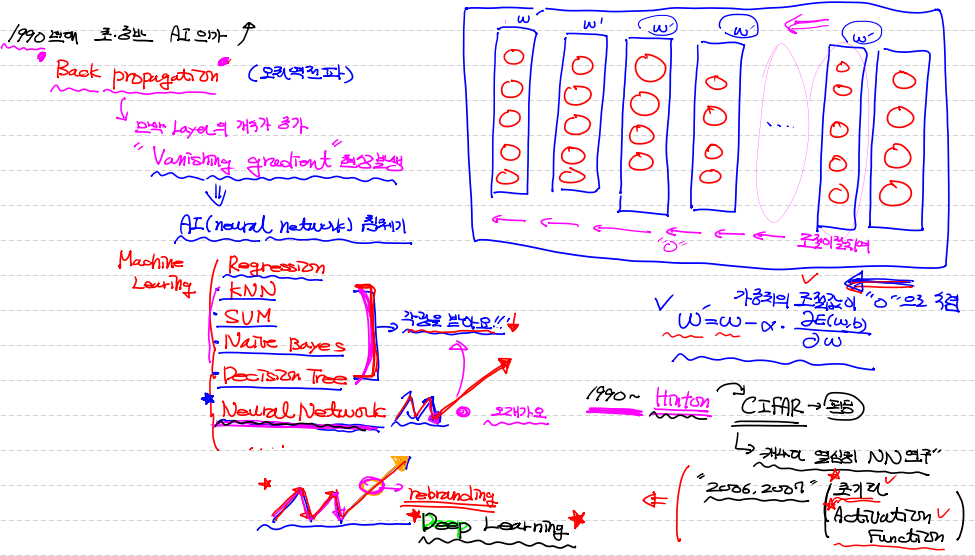 1990년대 초·중반 AI 의가
Back propagation (오차역전파)
만약 Layer의 개수가 증가
"Vanishing gradient" 현상발생
AI(neural network) 침체기
Machine Learing
Regression
KNN
SUM
Naive Bayes
Decision Tree
Neural Network
각광을 받아요!!!
오래가요
rebranding
Deep Learning
w' w' w' w' w'
...
"0"
가중치의 조절값이 "0"으로 수렴
w' = w - α · ∂E(w,b) / ∂w
1990~ Hinton CIFAR →
계속 열심히 NN 연구"
"2006, 2007" 초기화
Activation Function